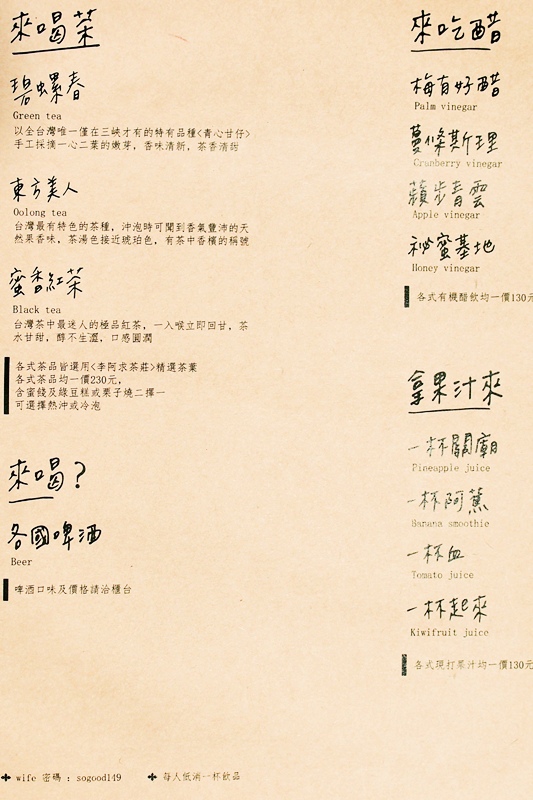 來喝茶
碧螺春
Green tea
以全台灣唯一僅在三峽才有的特有品種<青心甘仔>
手工採摘一心二葉的嫩芽，香味清新，茶香清甜
東方美人
Oolong tea
台灣最有特色的茶種，沖泡時可聞到香氣豐沛的天
然果香味，茶湯色接近琥珀色，有茶中香檳的稱號
蜜香紅茶
Black tea
台灣茶中最迷人的極品紅茶，一入喉立即回甘，茶
水甘甜，醇不生澀，口感圓潤
各式茶品皆選用<李阿求茶莊>精選茶葉
各式茶品均一價230元，
含蜜餞及綠豆糕或栗子燒二擇一
可選擇熱沖或冷泡
來喝?
各國啤酒
Beer
啤酒口味及價格請洽櫃台
wife 密碼 : sogood149
每人低消一杯飲品
來吃醋
梅有好醋
Palm vinegar
蔓條斯理
Cranberry vinegar
蘋步青雲
Apple vinegar
祕蜜基地
Honey vinegar
各式有機醋飲均一價130元
拿果汁來
一杯關廟
Pineapple juice
一杯阿蕉
Banana smoothie
一杯血
Tomato juice
一杯起來
Kiwifruit juice
各式現打果汁均一價130元